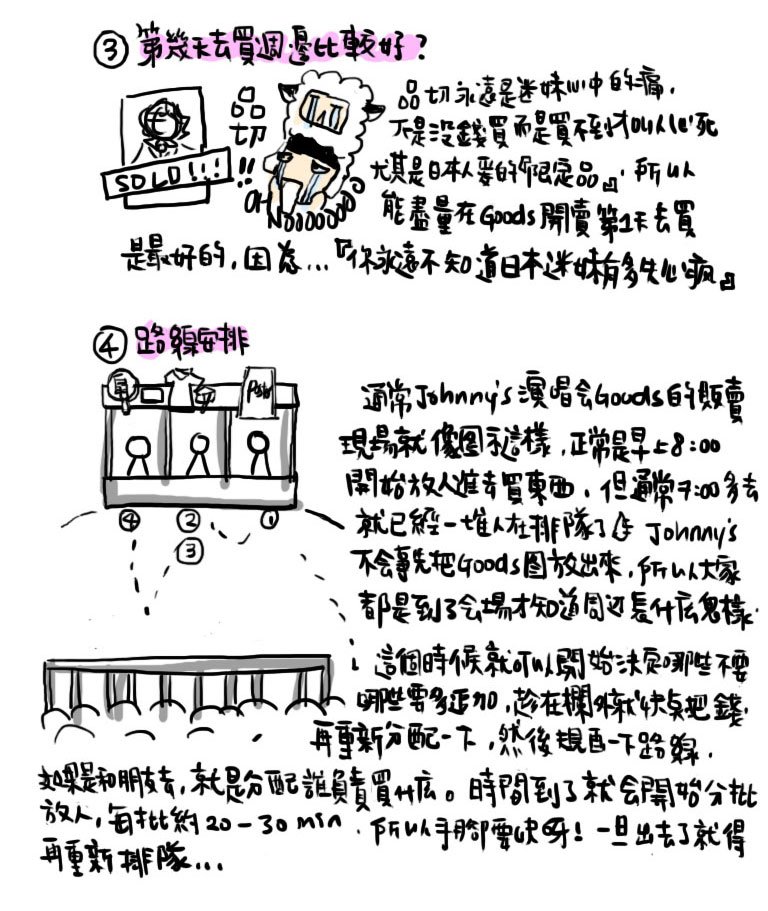 ③ 第幾天去買週邊比較好?
品切永遠是迷妹心中的痛,
不是沒錢買而是買不到才叫人心死
品切!!
SOLD!!!
OH NOOOOOOO
尤其是日本人愛的『限定品』, 所以
能盡量在Goods開賣第1天去買
是最好的, 因為...『你永遠不知道日本迷妹有多失心瘋』
④ 路線安排
Poster
④ ② ①
③
通常Johnny's演唱会Goods的販賣
現場就像圖示這樣, 正常是早上8:00
開始放人進去買東西, 但通常7:00多去
就已經一堆人在排隊了 Johnny's
不会事先把Goods图放出來, 所以大家
都是到了会場才知道周边長什么鬼樣.
這個時候就可以開始決定哪些不要
哪些要多追加, 趁在欄外就快點把錢
再重新分配一下, 然後規画一下路線.
如果是和朋友去, 就是分配誰負責買什么。時間到了就会開始分批
放人, 每批約20-30 min. 所以手腳要快呀! 一旦出去了就得
再重新排隊...